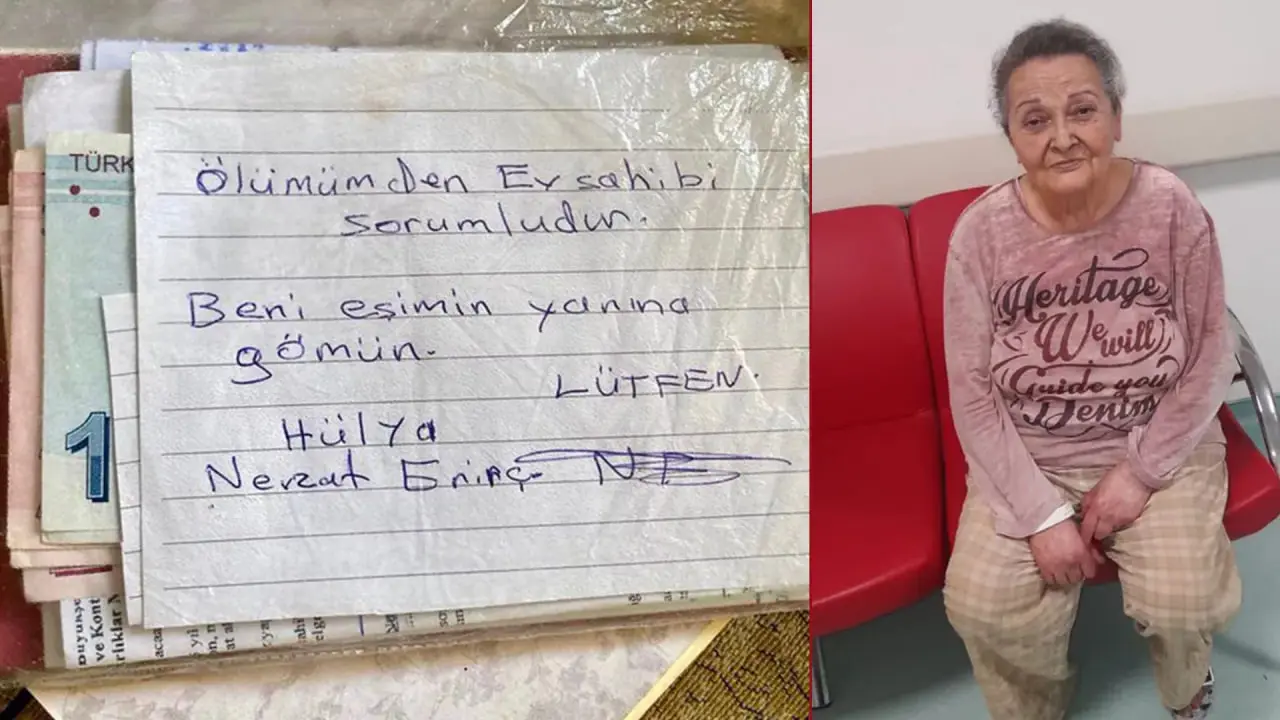 TÜRK
1
Ölümümden Ev sahibi
sorumludur.
Beni eşimin yanına
gömün.
LÜTFEN.
Hülya
Nevzat Erinç NE
ve Kont
Heritage
We will
Guide you
Denim